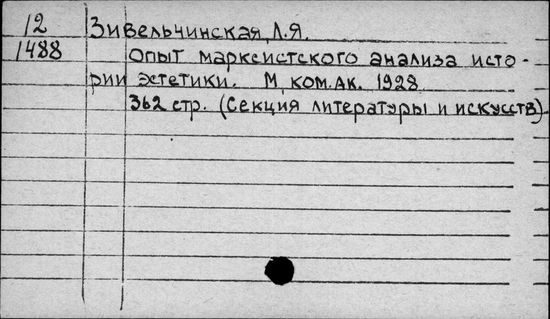 12 Зивельчинская, Л.Я.
1488 Опыт марксистского анализа исто-
рии эстетики. М, ком.ак. 1928
362 стр. (Секция литературы и искусств)